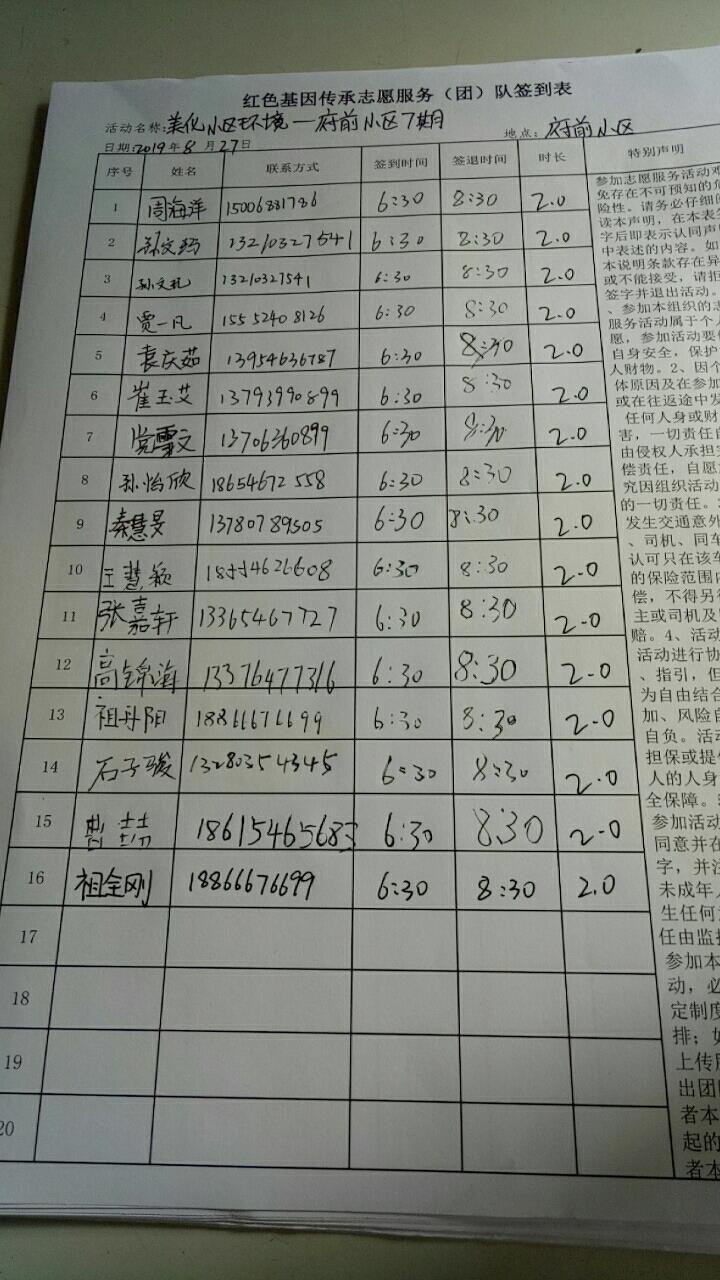 红色基因传承志愿服务（团）队签到表
活动名称:美化小区环境—府前小区7期
日期:2019年8月27日 地点：府前小区
序号 姓名 联系方式 签到时间 签退时间 时长 特别声明
1 周海洋 15006881786 6:30 8:30 2.0
2 13210327541 6:30 8:30 2.0
3 13210327541 6:30 8:30 2.0
4 贾一凡 15552408126 6:30 8:30 2.0
5 袁庆茹 13954636787 6:30 8:30 2.0
6 崔玉艾 13793990899 6:30 8:30 2.0
7 党雪文 13706360899 6:30 8:30 2.0
8 孙怡欣 18654672558 6:30 8:30 2.0
9 秦慧旻 13780789505 6:30 8:30 2.0
10 王慧颖 18554626608 6:30 8:30 2.0
11 张嘉轩 13365467727 6:30 8:30 2-0
12 高锦海 13376477316 6:30 8:30 2-0
13 祖丹阳 18866676699 6:30 8:30 2-0
14 石子骏 13280354345 6:30 8:30 2.0
15 曹喆 18615465683 6:30 8:30 2-0
16 祖金刚 18866676699 6:30 8:30 2.0
17
18
19
20
参加志愿服务活动难
免存在不可预知的危
险性。请务必仔细阅
读本声明，在本表签
字后即表示认同声明
中表述的内容。如
本说明条款存在异
或不能接受，请拒
签字并退出活动。
、参加本组织的志
服务活动属于个人
愿，参加活动要保
自身安全，保护
人财物。2、因个
体原因及在参加
或在往返途中发
任何人身或财
害，一切责任自
由侵权人承担
偿责任，自愿
究因组织活动
的一切责任。
发生交通意外
、司机、同车
认可只在该车
的保险范围内
偿，不得另行
主或司机及
赔。4、活动
活动进行协
、指引，但
为自由结合
加、风险自
自负。活动
担保或提供
人的人身
全保障。
参加活动
同意并在
字，并注
未成年人
生任何
任由监护
参加本
动，必
定制度
排；如
上传
出团
者本
起的
者本